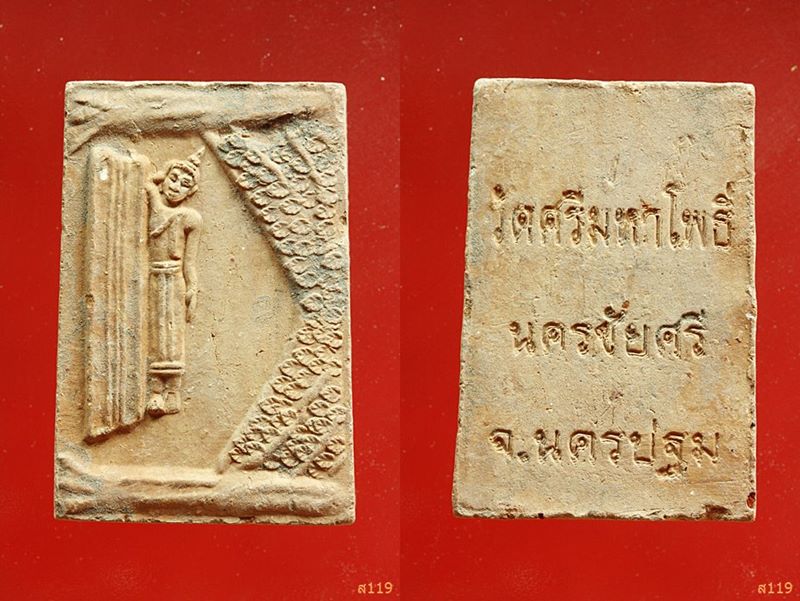 วัดศรีมหาโพธิ์
นครชัยศรี
จ.นครปฐม
ส119
ส119